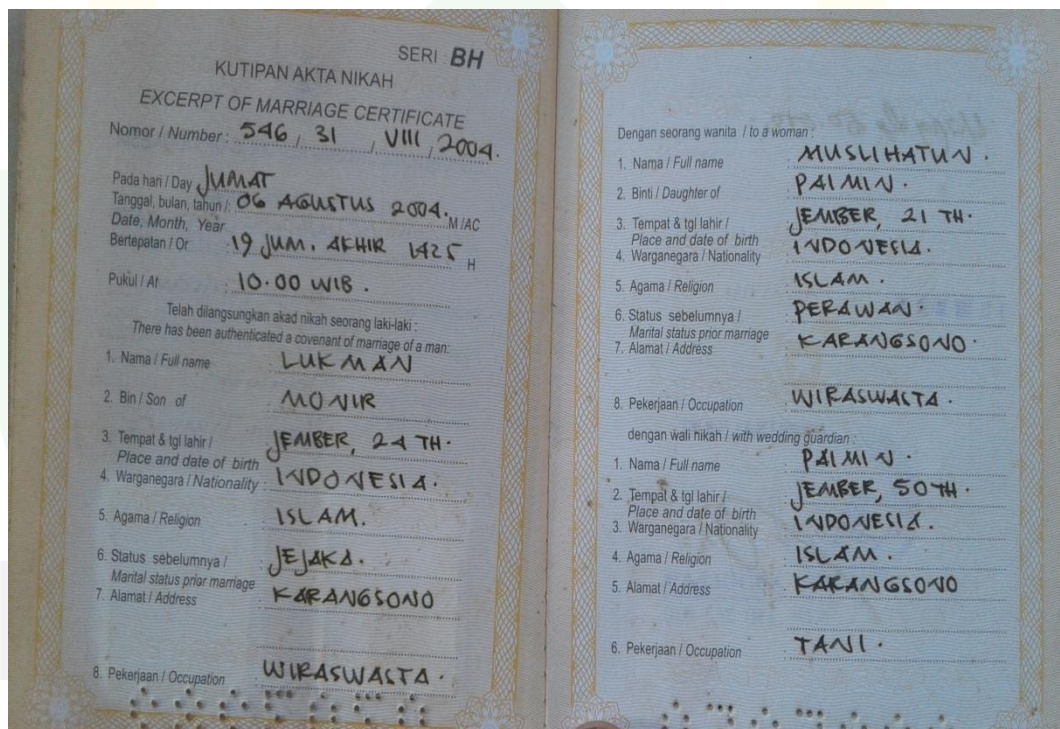 SERI : BH
KUTIPAN AKTA NIKAH
EXCERPT OF MARRIAGE CERTIFICATE
Nomor / Number : 546 / 31 / VIII / 2004.
Pada hari / Day JUMAT
Tanggal, bulan, tahun /: 06 AGUSTUS 2004. M /AC
Date, Month, Year
Bertepatan / Or 19 JUM. AKHIR 1425 H
Pukul / At : 10.00 WIB.
Telah dilangsungkan akad nikah seorang laki-laki :
There has been authenticated a covenant of marriage of a man:
1. Nama / Full name : LUKMAN
2. Bin / Son of : MONIR
3. Tempat & tgl lahir / : JEMBER, 24 TH.
Place and date of birth
4. Warganegara / Nationality : INDONESIA.
5. Agama / Religion : ISLAM.
6. Status sebelumnya / : JEJAKA.
Marital status prior marriage
7. Alamat / Address : KARANGSONO
8. Pekerjaan / Occupation : WIRASWASTA.
Dengan seorang wanita / to a woman :
1. Nama / Full name : MUSLIHATUN.
2. Binti / Daughter of : PAIMIN.
3. Tempat & tgl lahir / : JEMBER, 21 TH.
Place and date of birth
4. Warganegara / Nationality : INDONESIA.
5. Agama / Religion : ISLAM.
6. Status sebelumnya / : PERAWAN.
Marital status prior marriage
7. Alamat / Address : KARANGSONO.
8. Pekerjaan / Occupation : WIRASWASTA.
dengan wali nikah / with wedding guardian :
1. Nama / Full name : PAIMIN.
2. Tempat & tgl lahir / : JEMBER, 50 TH.
Place and date of birth
3. Warganegara / Nationality : INDONESIA.
4. Agama / Religion : ISLAM.
5. Alamat / Address : KARANGSONO
6. Pekerjaan / Occupation : TANI.